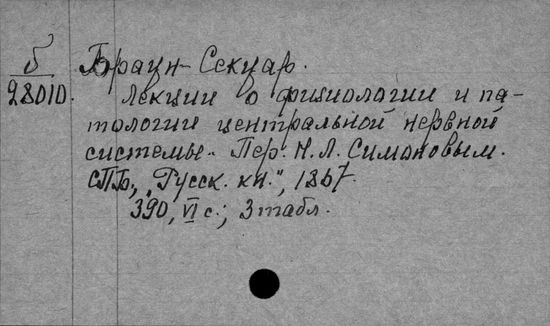 Б
28010.
Браун-Секуар.
Лекции о физиологии и па-
тологии центральной нервной
системы. Пер. Н. Л. Симановым.
СПб., "Русск. кн.", 1867.
390, VI с.; 3 табл.